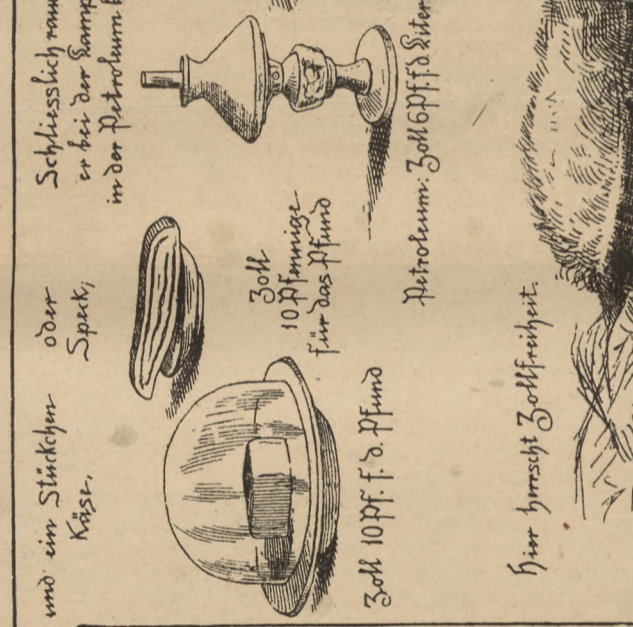 und ein Stückchen
Käse,
oder
Speck,
Schliesslich
er bei der Lamp
in der Petroleum
Zoll 10 Pf. f. d. Pfund
Zoll
10 Pfennige
für das Pfund
Petroleum: Zoll 6 Pf. f d Liter
Hier herrscht Zollfreiheit.